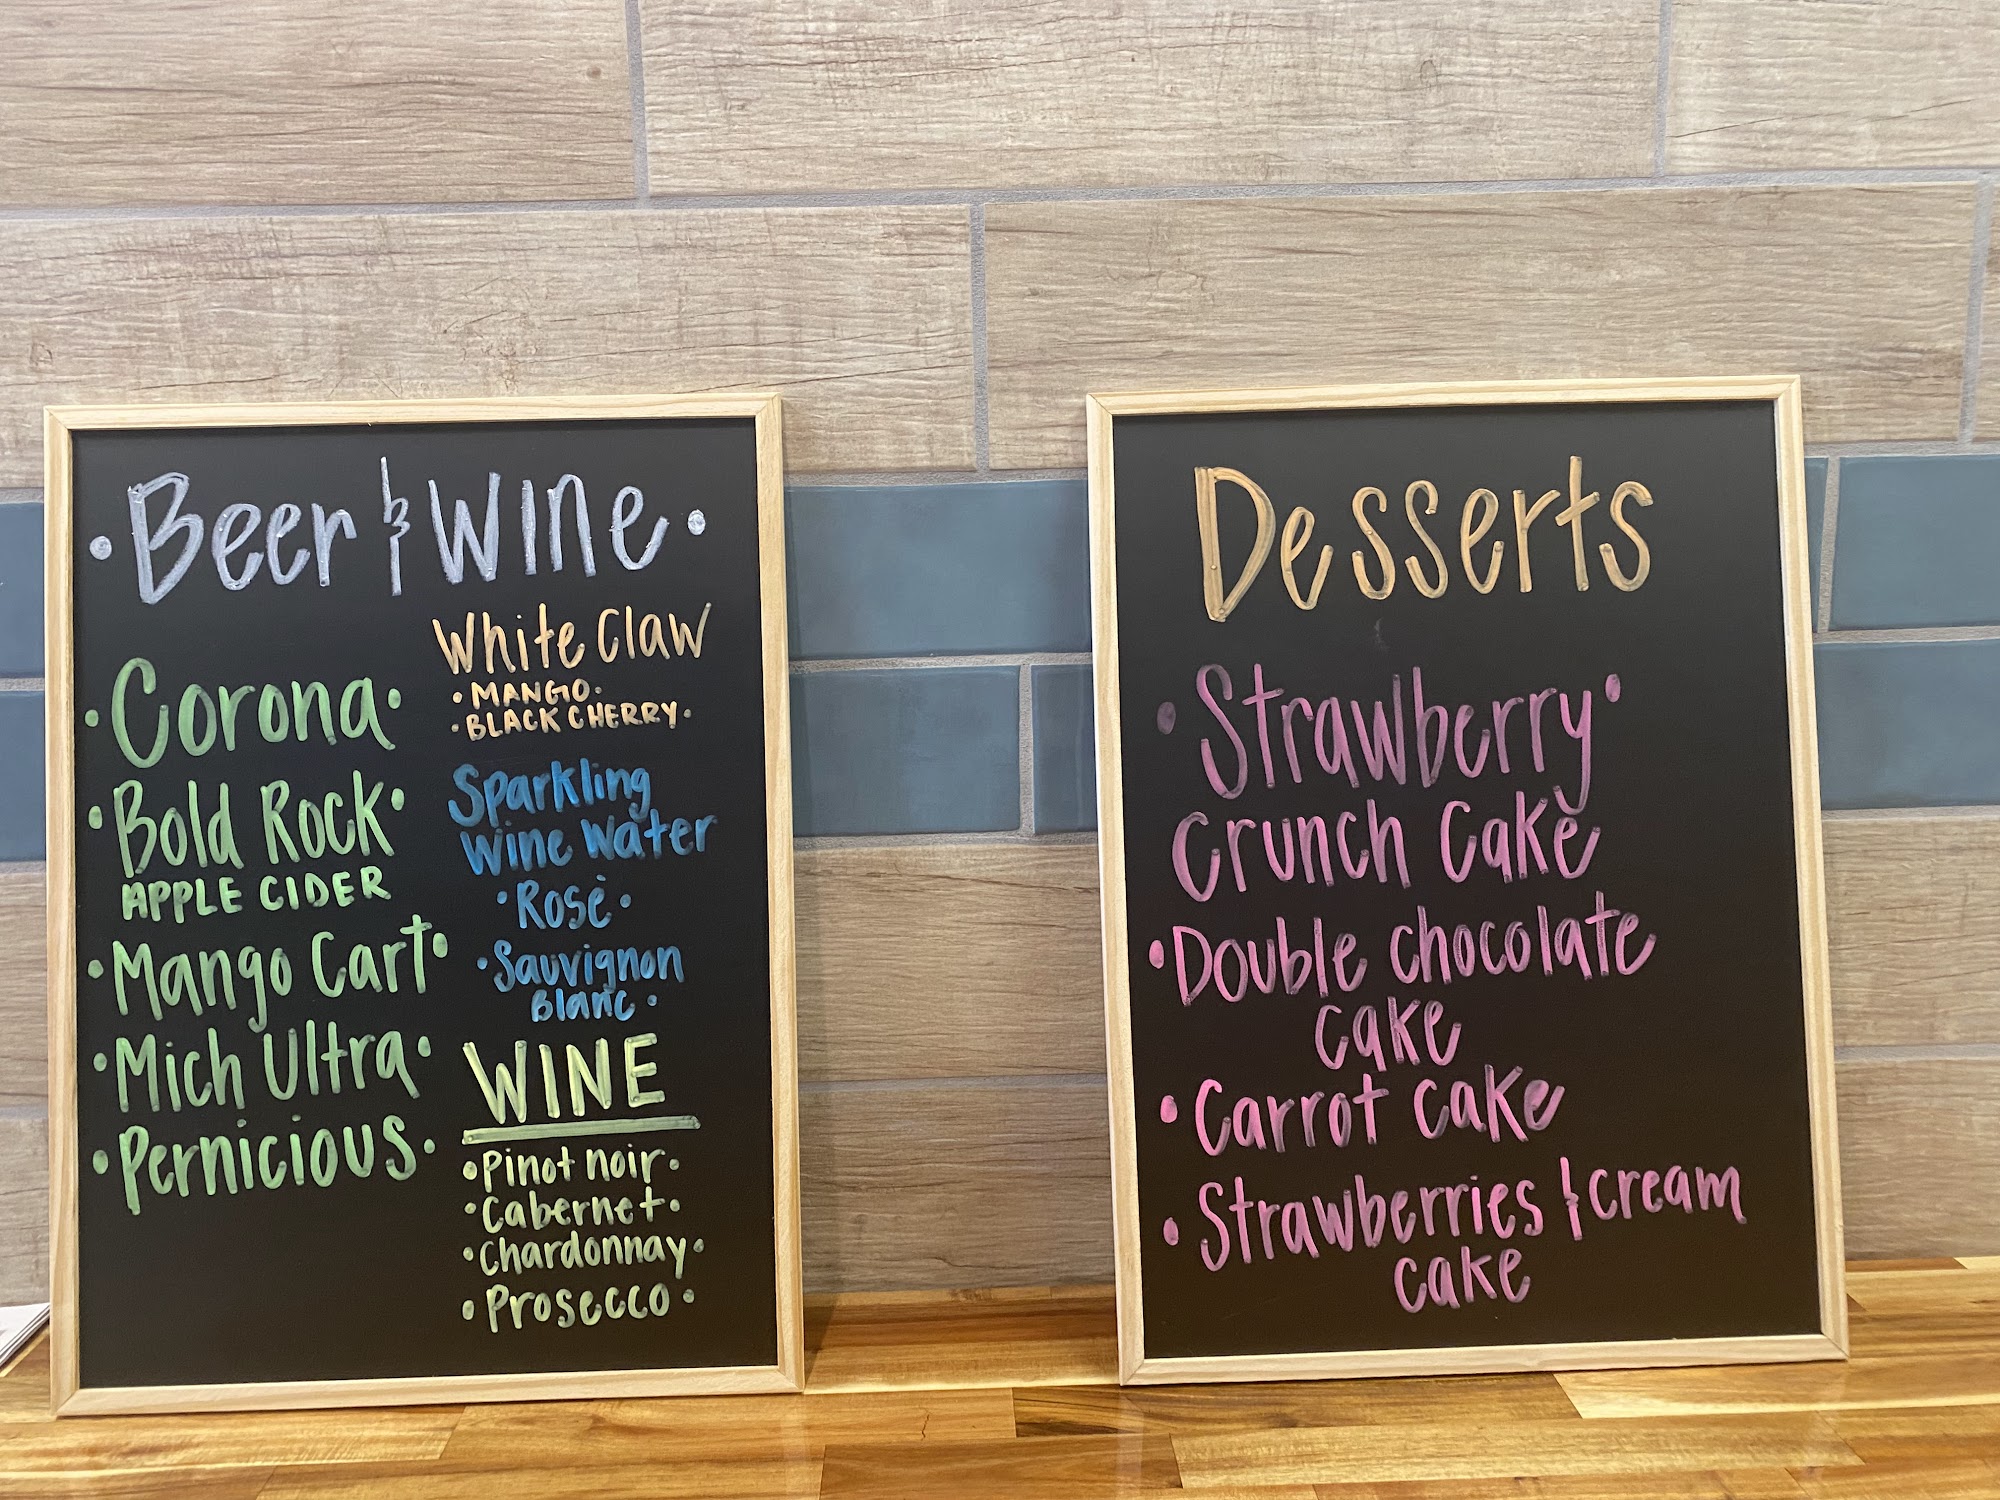 • Beer & Wine •
• Corona •
• Bold Rock •
APPLE CIDER
• Mango Cart •
• Mich Ultra •
• Pernicious •
White Claw
• MANGO •
• BLACK CHERRY •
Sparkling
Wine Water
• Rosè •
• Sauvignon
Blanc •
WINE
• Pinot noir •
• Cabernet •
• Chardonnay •
• Prosecco •
Desserts
• Strawberry •
Crunch Cake
• Double chocolate
cake
• Carrot cake
• Strawberries & cream
cake